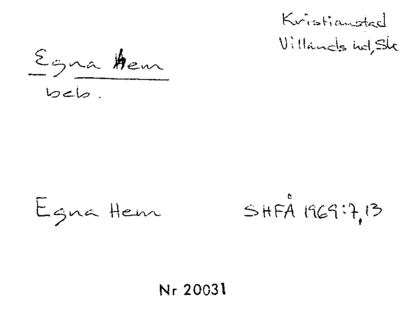 Kristianstad
Villands hd, Sk
Egna Hem
beb.
Egna Hem SHFÅ 1969:7,13
Nr 20031